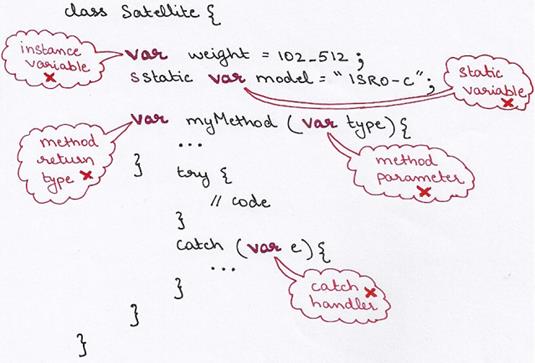 class Satellite {
instance
variable ×
var weight = 102_512 ;
sstatic var model = "ISRO-C" ;
static
variable
×
var myMethod ( var type) {
method
return
type ×
...
method
parameter
×
}
try {
// code
}
catch (var e) {
...
catch ×
handler
}
}
}